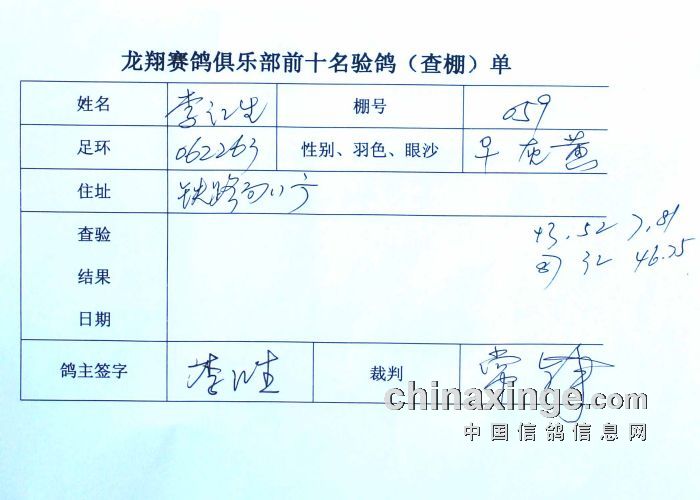 龙翔赛鸽俱乐部前十名验鸽（查棚）单
姓名 李江生 棚号 059
足环 062263 性别、羽色、眼沙 早 灰 黄
住址 铁路
查验
43.52 7.81
结果
32 46.25
日期
鸽主签字 李 裁判 常
chinaxinge.com
中国信鸽信息网